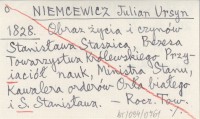 NIEMCEWICZ Julian Ursyn
1828. Obraz życia i czynów
Stanisława Staszica, Prezesa
Towarzystwa Królewskiego Przy-
jaciół nauk, Ministra Stanu,
Kawalera orderów Orła białego
i S. Stanisława. – Rocz. Tow.